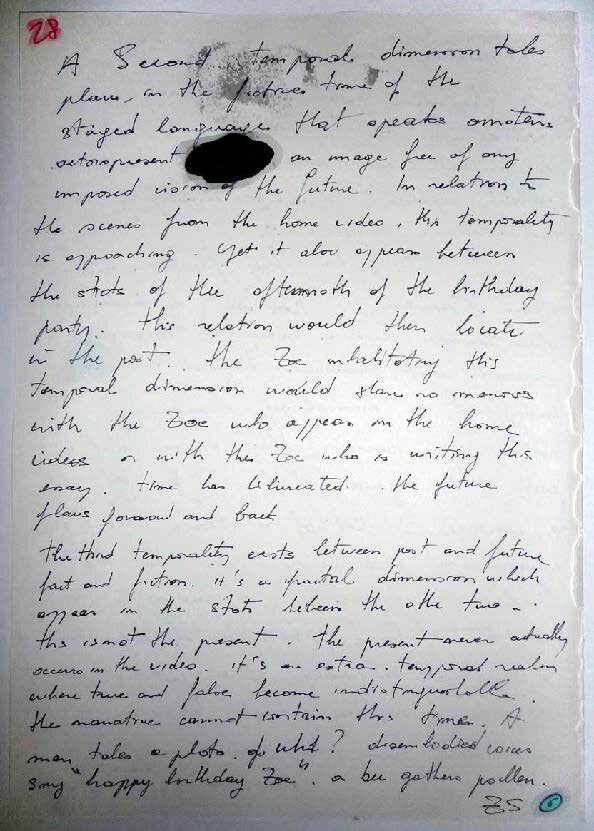 28
A Second temporal dimension takes
place, in the fictive time of the
staged language that speaks
an image free of any
imposed vision of the future. In relation to
the scenes from the home video, this temporality
is approaching. Yet it also appears between
the shots of the aftermath of the birthday
party. This relation would then locate
in the past. The Zoe inhabitating this
temporal dimension would share no memories
with the Zoe who appears in the home
videos or with the Zoe who is writing this
essay. Time has bifurcated. The future
flows forward and back
The third temporality exists between past and future
fact and fiction. it's a fractal dimension which
appears in the shots between the other two -
this is not the present. The present never actually
occurs in the video. it's an extra-temporal realm
where true and false become indistinguishable.
The narrative cannot contain this time. A
man takes a photo. of what? disembodied voices
sing "happy birthday Zoe". a bee gathers pollen.
ZS 6